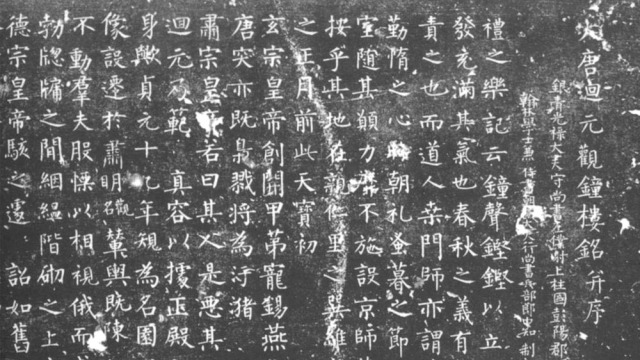 大唐迴元觀鐘樓銘并序
銀青光祿大夫守尚書左僕射上柱國彭陽郡
翰林學士兼侍書朝議大夫行尚書兵部郎中知制
禮之樂記云鐘聲鏗鏗以立
發充滿其氣也春秋之義有
責之也而道人桑門師亦謂
勤惰之心時朝礼蚤暮之節
室隨其顛力不施設京師
按乎其地在親仁里之巽維
之正月前此天寶初
玄宗皇帝創開甲第寵錫燕
唐突亦既梟戮將為汙豬
肅宗皇帝若曰其人是惡其
迴元乃範 真容以據正殿
身歟貞元十九年規為名園
像設遷於肅明觀輦輿既陳
不動羣夫股慄以相視俄而
勃牕牖之間絪縕階砌之上
德宗皇帝駭之遽 詔如舊